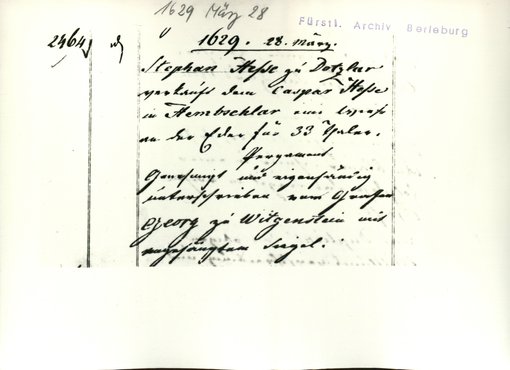 1629 März 28
Fürstl. Archiv Berleburg
2464
1629. 28. März.
Stephan Hesse zu Dotzlar
verkauft dem Caspar Hesse
in Hembschlar eine Wiese
an der Eder für 33 Thaler.
Pergament
Genehmigt und eigenhändig
unterschrieben vom Grafen
Georg zu Witgenstein mit
angehängtem Siegel.